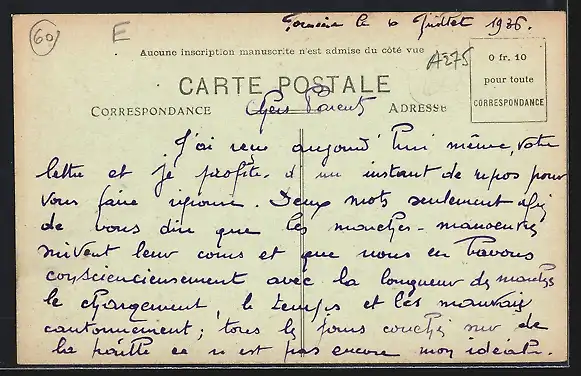 60
E
le 6 Juillet 1936.
Aucune inscription manuscrite n'est admise du côté vue
A275
0 fr. 10
pour toute
CORRESPONDANCE
CARTE POSTALE
CORRESPONDANCE
ADRESSE
Chers Parents
J'ai reçu aujourd'hui même, votre
lettre et je profite d'un instant de repos pour
vous faire réponse. Deux mots seulement afin
de vous dire que les marches-manoeuvres
suivent leur cours et que nous en bavons
consciencieusement avec la longueur des marches
le chargement, le temps et les mauvais
cantonnement; tous les jours coucher sur de
la paille ce n'est pas encore mon idéal.